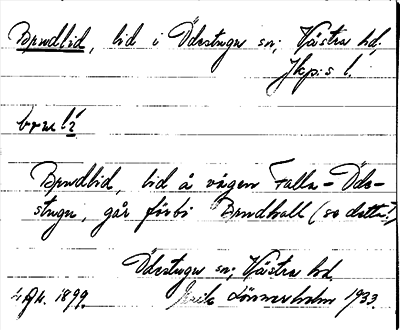 Brudlid, lid i Ödestugu sn; Västra hd.
Jkp:s l.
Brudlid, lid å vägen Falla - Öde-
stugu, går förbi Brudhall (se detta!)
Ödestugu sn; Västra hd.
1899. Lönnerholm 1933.